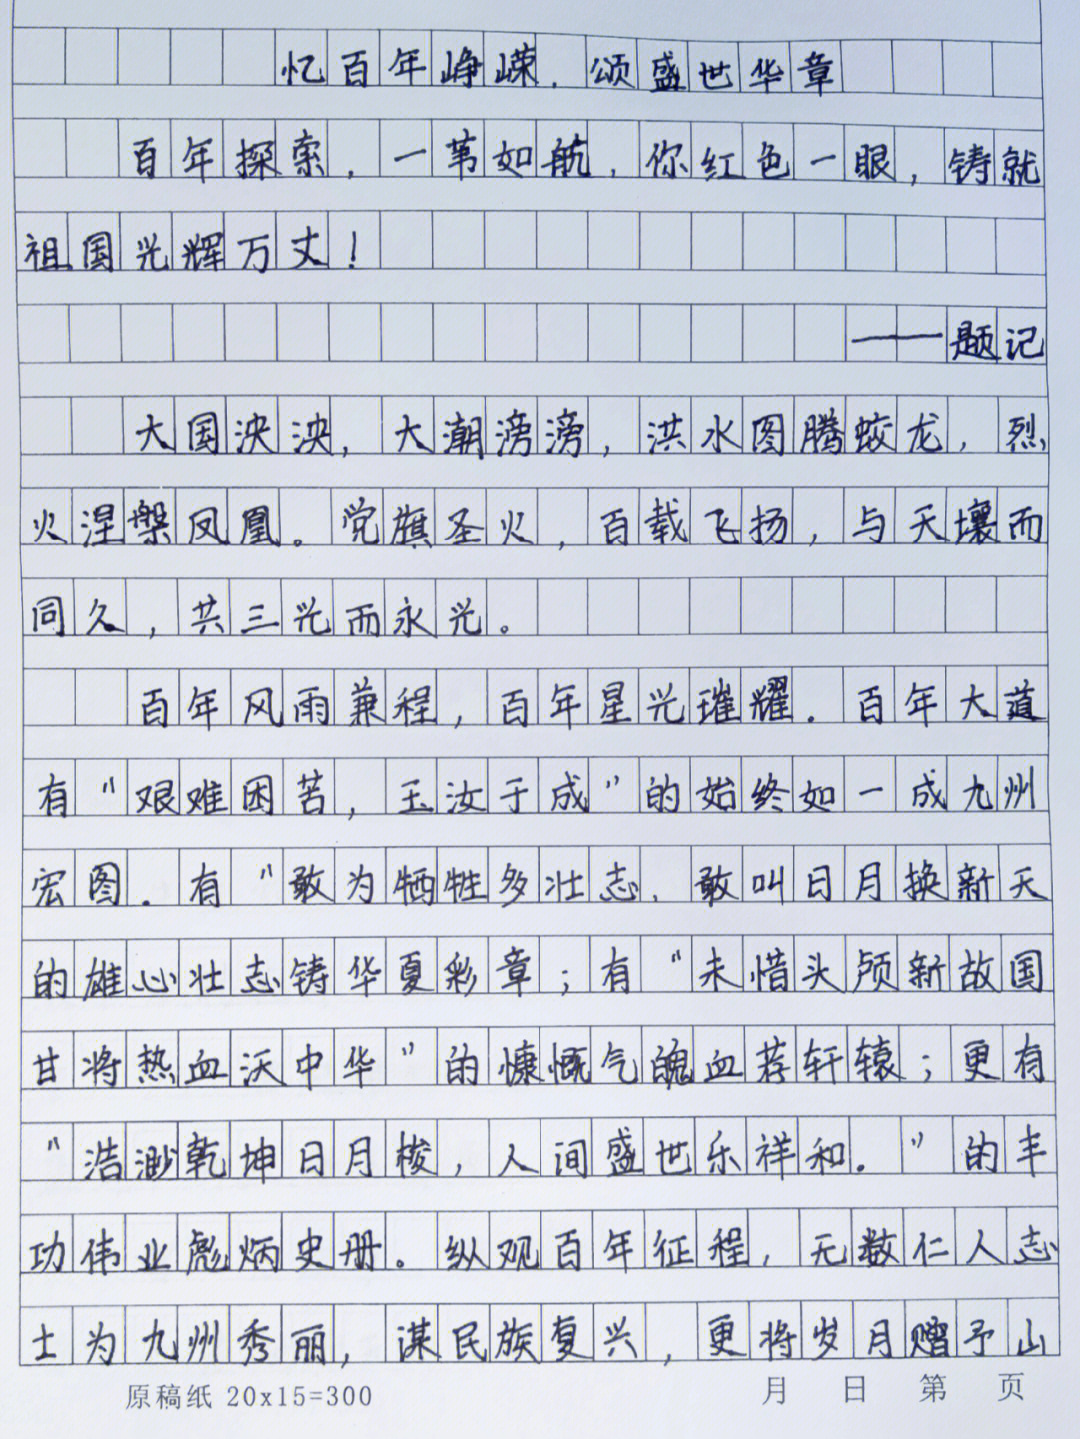 忆百年峥嵘，颂盛世华章
百年探索，一苇如航，你红色一眼，铸就
祖国光辉万丈！
——题记
大国泱泱，大潮滂滂，洪水图腾蛟龙，烈
火涅槃凤凰。党旗圣火，百载飞扬，与天壤而
同久，共三光而永光。
百年风雨兼程，百年星光璀耀．百年大道
有“艰难困苦，玉汝于成”的始终如一成九州
宏图．有“敢为牺牲多壮志．敢叫日月换新天
的雄心壮志铸华夏彩章；有“未惜头颅新故国
甘将热血沃中华”的慷慨气魄血荐轩辕；更有
“浩渺乾坤日月梭，人间盛世乐祥和．”的丰
功伟业彪炳史册。纵观百年征程，无数仁人志
士为九州秀丽，谋民族复兴，更将岁月赠予山
原稿纸 20x15=300 月 日 第 页